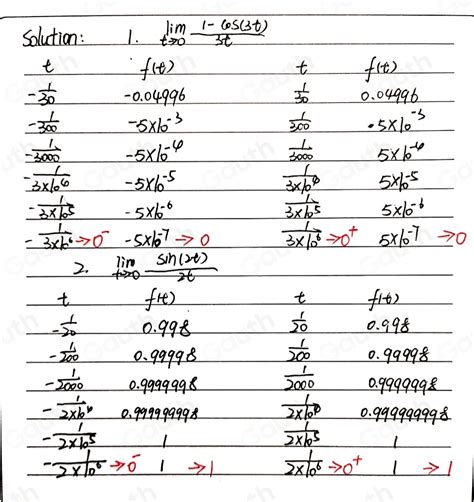 Solution: 1. lim t→0 1-cos(3t) / 3t
t f(t) t f(t)
-1/30 -0.04996 1/30 0.04996
-1/300 -5×10^-3 1/300 5×10^-3
-1/3000 -5×10^-4 1/3000 5×10^-4
-1/3×10^4 -5×10^-5 1/3×10^4 5×10^-5
-1/3×10^5 -5×10^-6 1/3×10^5 5×10^-6
-1/3×10^6 →0^- -5×10^-7 →0 1/3×10^6 →0^+ 5×10^-7 →0
2. lim t→0 sin(2t) / 2t
t f(t) t f(t)
-1/20 0.998 1/20 0.998
-1/200 0.99998 1/200 0.99998
-1/2000 0.9999998 1/2000 0.9999998
-1/2×10^4 0.999999998 1/2×10^4 0.999999998
-1/2×10^5 1 1/2×10^5 1
-1/2×10^6 →0^- 1 →1 1/2×10^6 →0^+ 1 →1